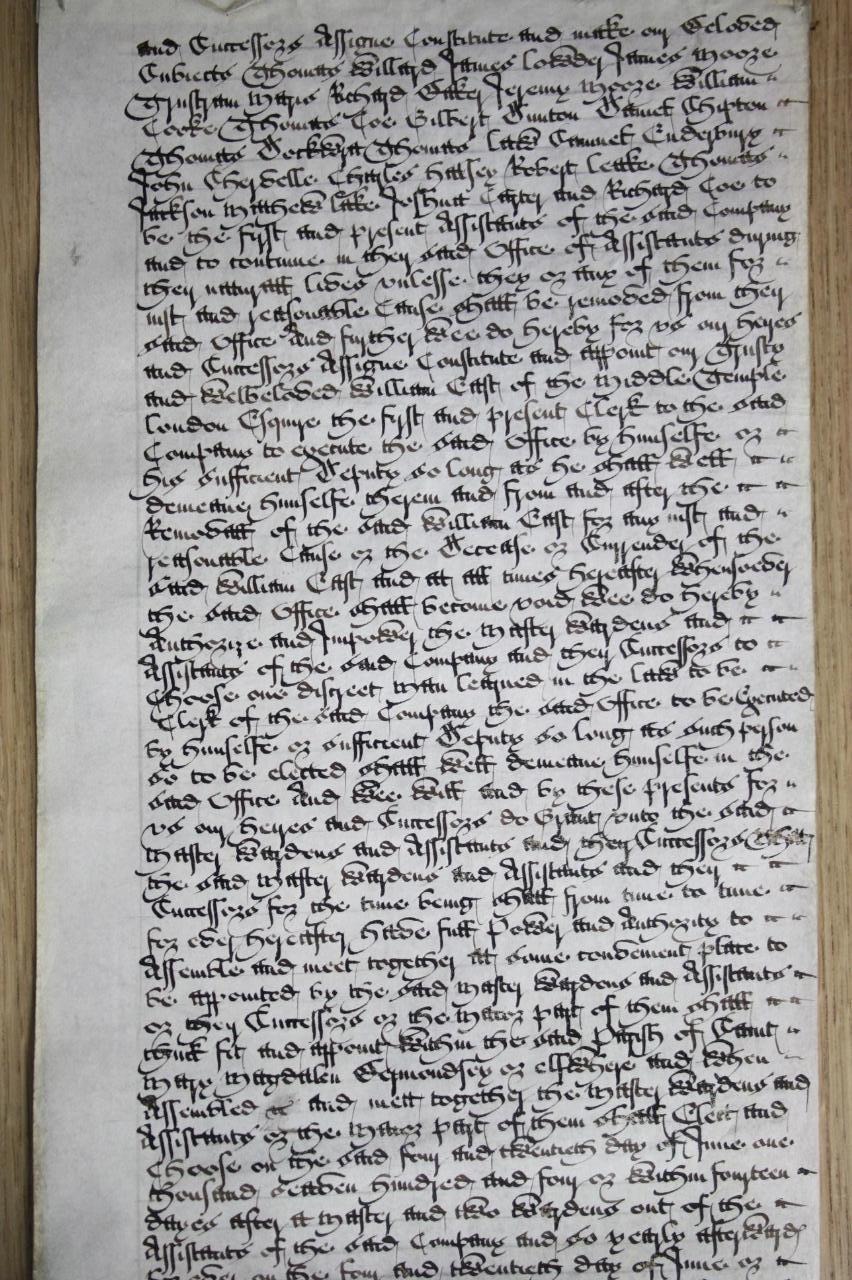 and Successors Assigne Constitute and make our beloved
Subiects Thomas Willard James Lowder James Mooze
Tristram Maris Richard Baker Jeremy Mooze William
Cooke Thomas Coe Gilbert Samuel Shipton
Thomas Thomas Law Samuel Enderbury
John Charles Halsey Robert Leake Thomas
Jackson Matthew Lake Joshua Carter and Richard Coe to
be the first and present Assistants of the said Company
and to continue in their said Office of Assistants during
their naturall lives vnlesse they or any of them for
iust and reasonable Cause shall be removed from their
said Office And further Wee do hereby for vs our heires
and Successors Assigne Constitute and appoint our Trusty
and Welbeloved William East of the Middle Temple
London Esquire the first and present Clerk to the said
Company to execute the said Office by himselfe or
his sufficient Deputy so long as he shall well
demeane himselfe therein and from and after the
Removall of the said William East for any iust and
reasonable Cause or the Decease or Surrender of the
said William East and at all times hereafter whensoever
the said Office shall become void Wee do hereby
Authorize and Impower the Master Wardens and
Assistants of the said Company and their Successors to
Choose one discreet man learned in the law to be
Clerk of the said Company the said Office to be Executed
by himselfe or sufficient Deputy so long as such person
so to be elected shall well demeane himselfe in the
said Office And Wee Will and by these presents for
vs our heires and Successors do Grant vnto the said
Master Wardens and Assistants and their Successors That
the said Master Wardens and Assistants and their
Successors for the time being shall from time to time
for ever hereafter have full Power and Authority to
Assemble and meet together at some convenient place to
be appointed by the said Master Wardens and Assistants
or their Successors or the Maior part of them shall
think fit and appoint within the said Parish of Saint
Mary Magdalen Bermondsey or elswhere and when
Assembled and mett together the Master Wardens and
Assistants or the Maior part of them shall Elect and
Choose on the said four and twentieth day of June one
thousand seaven hundred and four or within fourteen
dayes after a Master and two Wardens out of the
Assistants of the said Company and so yearly afterwards
for ever on the four and twentieth day of June or